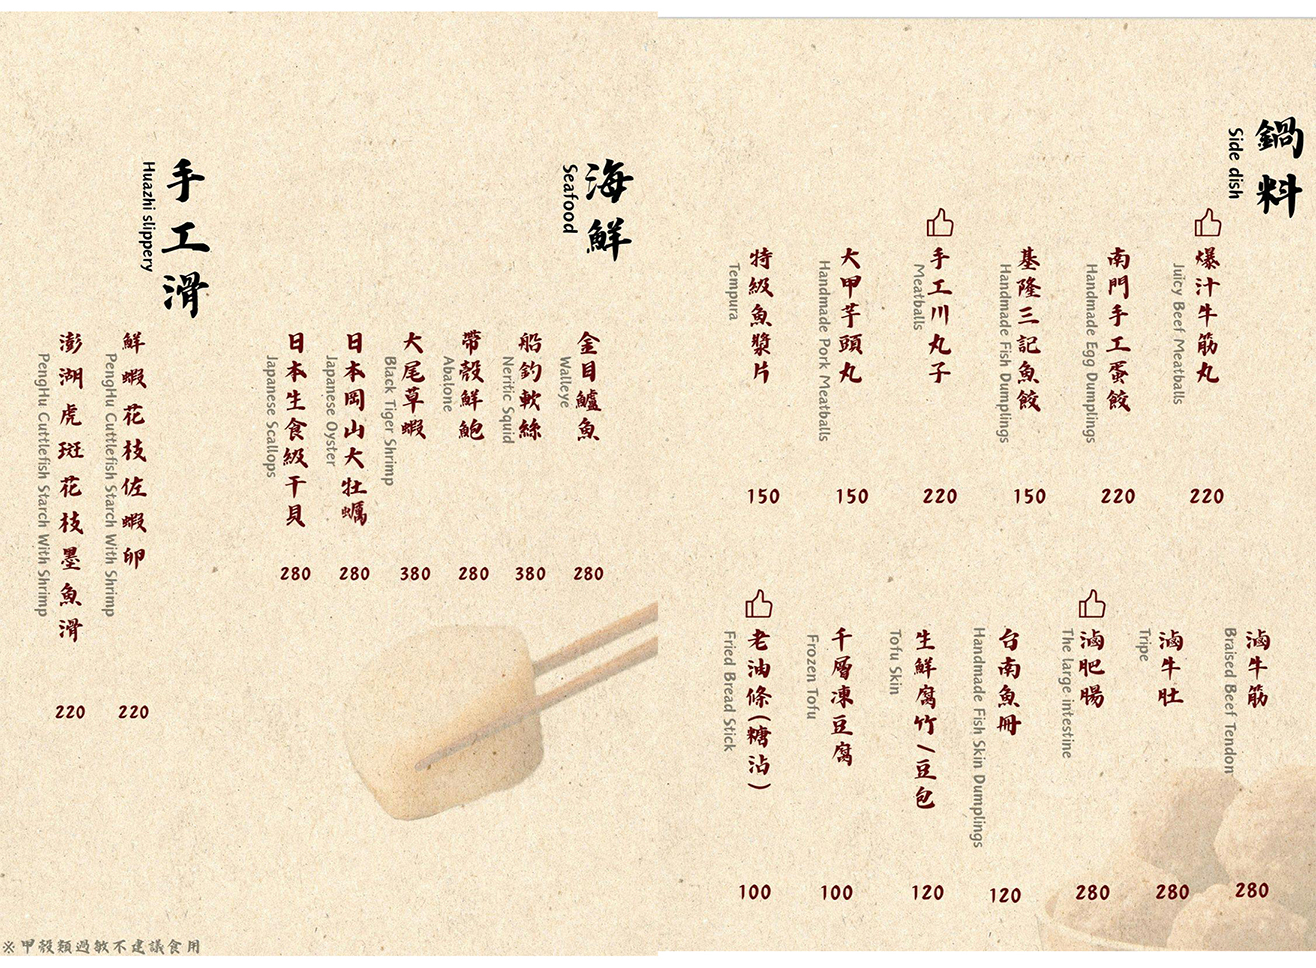 鍋料
Side dish
爆汁牛筋丸
Juicy Beef Meatballs
220
南門手工蛋餃
Handmade Egg Dumplings
220
基隆三記魚餃
Handmade Fish Dumplings
150
手工川丸子
Meatballs
220
大甲芋頭丸
Handmade Pork Meatballs
150
特級魚漿片
Tempura
150
滷牛筋
Braised Beef Tendon
280
滷牛肚
Tripe
280
滷肥腸
The large intestine
280
台南魚冊
Handmade Fish Skin Dumplings
120
生鮮腐竹/豆包
Tofu Skin
120
千層凍豆腐
Frozen Tofu
100
老油條(糖沾)
Fried Bread Stick
100
海鮮
Seafood
金目鱸魚
Walleye
280
船釣軟絲
Neritic Squid
380
帶殼鮮鮑
Abalone
280
大尾草蝦
Black Tiger Shrimp
380
日本岡山大牡蠣
Japanese Oyster
280
日本生食級干貝
Japanese Scallops
280
手工滑
Huazhi slippery
鮮蝦花枝佐蝦卵
PengHu Cuttlefish Starch With Shrimp
220
澎湖虎斑花枝墨魚滑
PengHu Cuttlefish Starch With Shrimp
220
※甲殼類過敏不建議食用